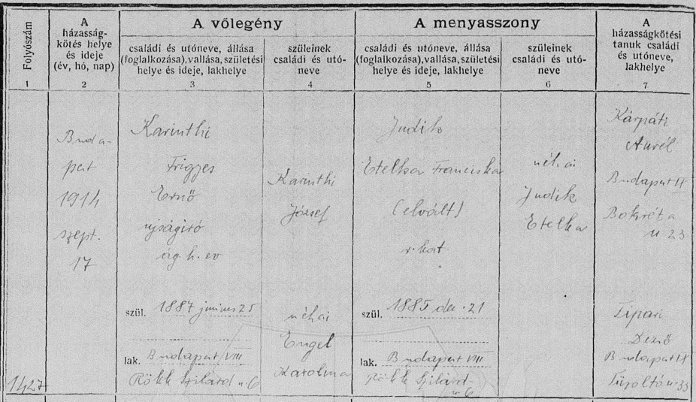 Folyószám
1
A
házasság-
kötés helye
és ideje
(év, hó, nap)
2
A vőlegény
családi és utóneve, állása
(foglalkozása), vallása, születési
helye és ideje, lakhelye
3
szüleinek
családi és utó-
neve
4
A menyasszony
családi és utóneve, állása
(foglalkozása), vallása, születési
helye és ideje, lakhelye
5
szüleinek
családi és utó-
neve
6
A
házasságkötési
tanuk családi
és utóneve,
lakhelye
7
1427
Buda-
pest
1914
szept.
17
Karinthi
Frigyes
Ernő
ujságiró
ág. h. ev
szül. 1887 junius 25
lak. Budapest VIII
Rökk Szilárd u 6
Karinthi
József
néhai
Engel
Karolina
Judik
Etelka Franciska
(elvált)
r. kat
szül. 1885 dec. 21
lak. Budapest VIII
Rökk Szilárd
u 6
néhai
Judik
Etelka
Kárpáti
Aurél
Budapest II
Bokréta
u 23
Dezső
Budapest